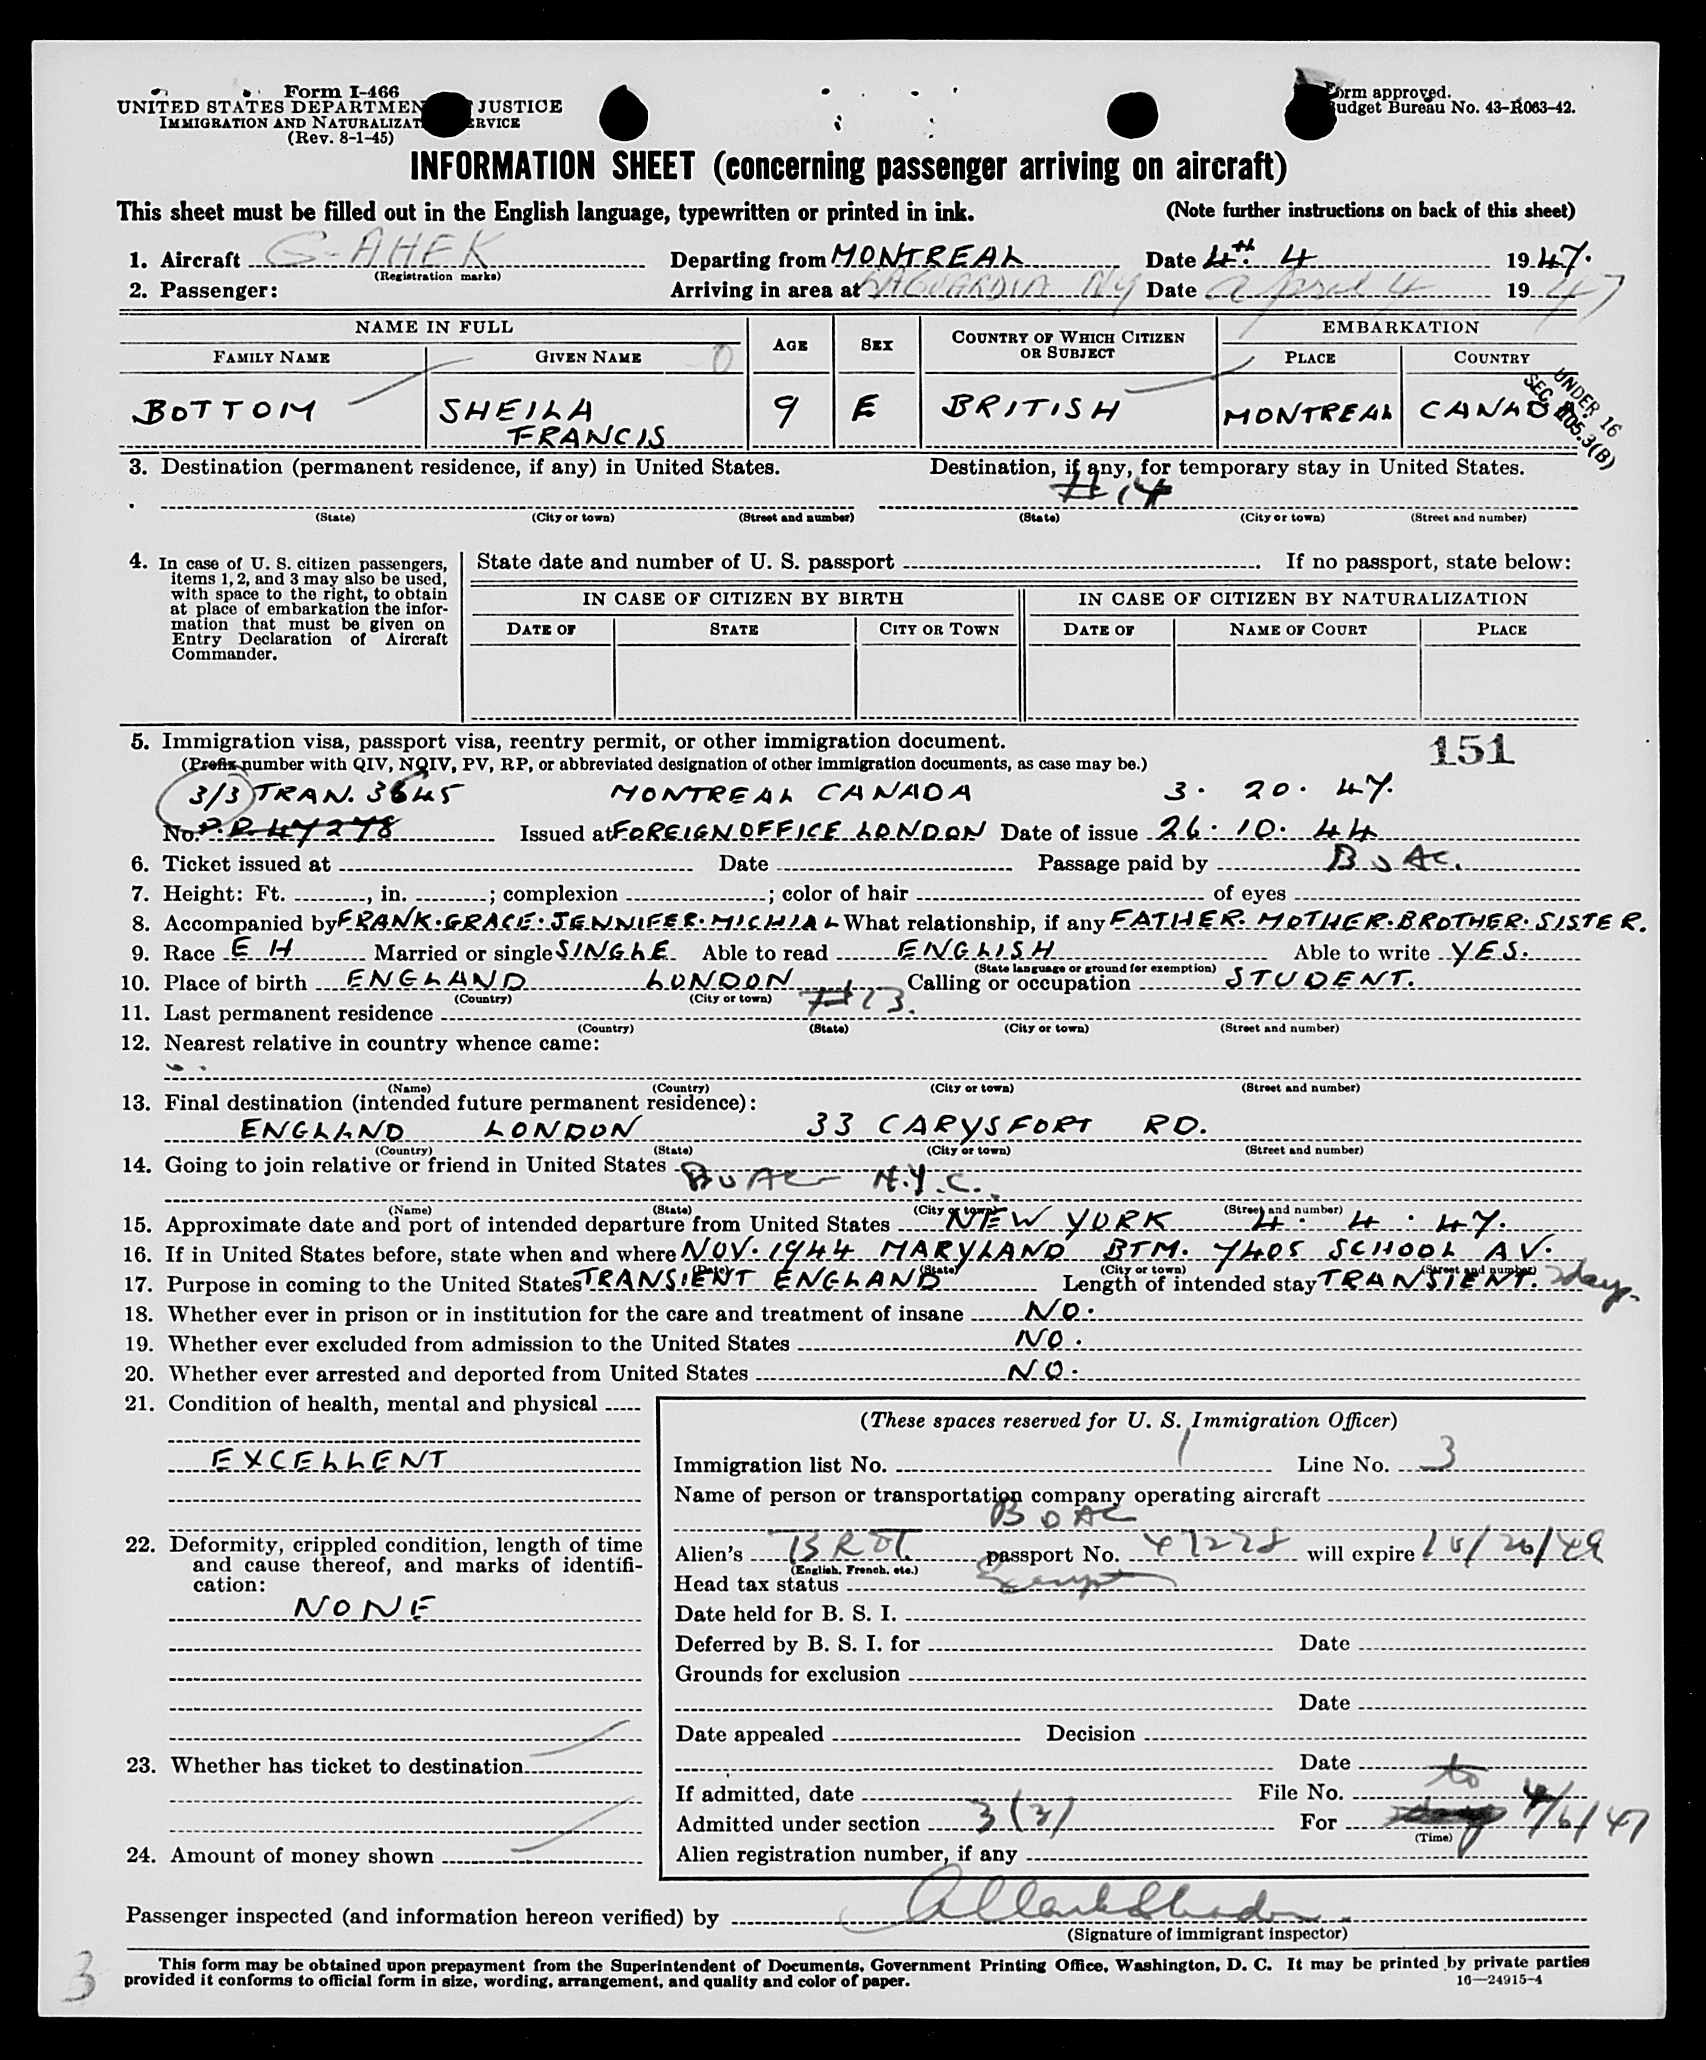 Form I-466
UNITED STATES DEPARTMENT JUSTICE
IMMIGRATION AND NATURALIZAT SERVICE
(Rev. 8-1-45)
Form approved.
Budget Bureau No. 43-R063-42.
INFORMATION SHEET (concerning passenger arriving on aircraft)
This sheet must be filled out in the English language, typewritten or printed in ink. (Note further instructions on back of this sheet)
1. Aircraft G-AHEK Departing from MONTREAL Date 4th. 4 1947.
(Registration marks)
2. Passenger: Arriving in area at LAGUARDIA NY Date April 4 1947
NAME IN FULL AGE SEX COUNTRY OF WHICH CITIZEN OR SUBJECT EMBARKATION
FAMILY NAME GIVEN NAME PLACE COUNTRY
BOTTOM SHEILA FRANCIS 9 F BRITISH MONTREAL CANADA.
UNDER 16
SEC. 105.3(B)
3. Destination (permanent residence, if any) in United States. Destination, if any, for temporary stay in United States.
#14
(State) (City or town) (Street and number) (State) (City or town) (Street and number)
4. In case of U. S. citizen passengers, items 1, 2, and 3 may also be used, with space to the right, to obtain at place of embarkation the information that must be given on Entry Declaration of Aircraft Commander.
State date and number of U. S. passport . If no passport, state below:
IN CASE OF CITIZEN BY BIRTH IN CASE OF CITIZEN BY NATURALIZATION
DATE OF STATE CITY OR TOWN DATE OF NAME OF COURT PLACE
5. Immigration visa, passport visa, reentry permit, or other immigration document. 151
(Prefix number with QIV, NQIV, PV, RP, or abbreviated designation of other immigration documents, as case may be.)
3/3 TRAN. 3645 MONTREAL CANADA 3. 20. 47.
No. P.P. 47278 Issued at FOREIGN OFFICE LONDON Date of issue 26.10.44
6. Ticket issued at Date Passage paid by BOAC.
7. Height: Ft. , in. ; complexion ; color of hair of eyes
8. Accompanied by FRANK.GRACE.JENNIFER.MICHIAL What relationship, if any FATHER.MOTHER.BROTHER.SISTER.
9. Race EH Married or single SINGLE Able to read ENGLISH Able to write YES.
(State language or ground for exemption)
10. Place of birth ENGLAND LONDON Calling or occupation STUDENT.
(Country) (City or town)
11. Last permanent residence #13.
(Country) (State) (City or town) (Street and number)
12. Nearest relative in country whence came:
(Name) (Country) (City or town) (Street and number)
13. Final destination (intended future permanent residence):
ENGLAND LONDON 33 CARYSFORT RD.
(Country) (State) (City or town) (Street and number)
14. Going to join relative or friend in United States BOAC N.Y.C.
(Name) (State) (City or town) (Street and number)
15. Approximate date and port of intended departure from United States NEW YORK 4. 4. 47.
16. If in United States before, state when and where NOV. 1944 MARYLAND BTM. 7405 SCHOOL AV.
(Date) (State) (City or town) (Street and number)
17. Purpose in coming to the United States TRANSIENT ENGLAND Length of intended stay TRANSIENT. 2 days.
18. Whether ever in prison or in institution for the care and treatment of insane NO.
19. Whether ever excluded from admission to the United States NO.
20. Whether ever arrested and deported from United States NO.
21. Condition of health, mental and physical
EXCELLENT
22. Deformity, crippled condition, length of time and cause thereof, and marks of identification:
NONE
23. Whether has ticket to destination
24. Amount of money shown
(These spaces reserved for U. S. Immigration Officer)
Immigration list No. 1 Line No. 3
Name of person or transportation company operating aircraft
BOAC
Alien's BRIT. passport No. 47278 will expire 10/26/49
(English, French, etc.)
Head tax status Exempt
Date held for B. S. I.
Deferred by B. S. I. for Date
Grounds for exclusion
Date
Date appealed Decision
Date
If admitted, date File No.
Admitted under section 3(3) For to 4/6/47
(Time)
Alien registration number, if any
Passenger inspected (and information hereon verified) by
(Signature of immigrant inspector)
This form may be obtained upon prepayment from the Superintendent of Documents, Government Printing Office, Washington, D. C. It may be printed by private parties
provided it conforms to official form in size, wording, arrangement, and quality and color of paper. 16—24915-4
3